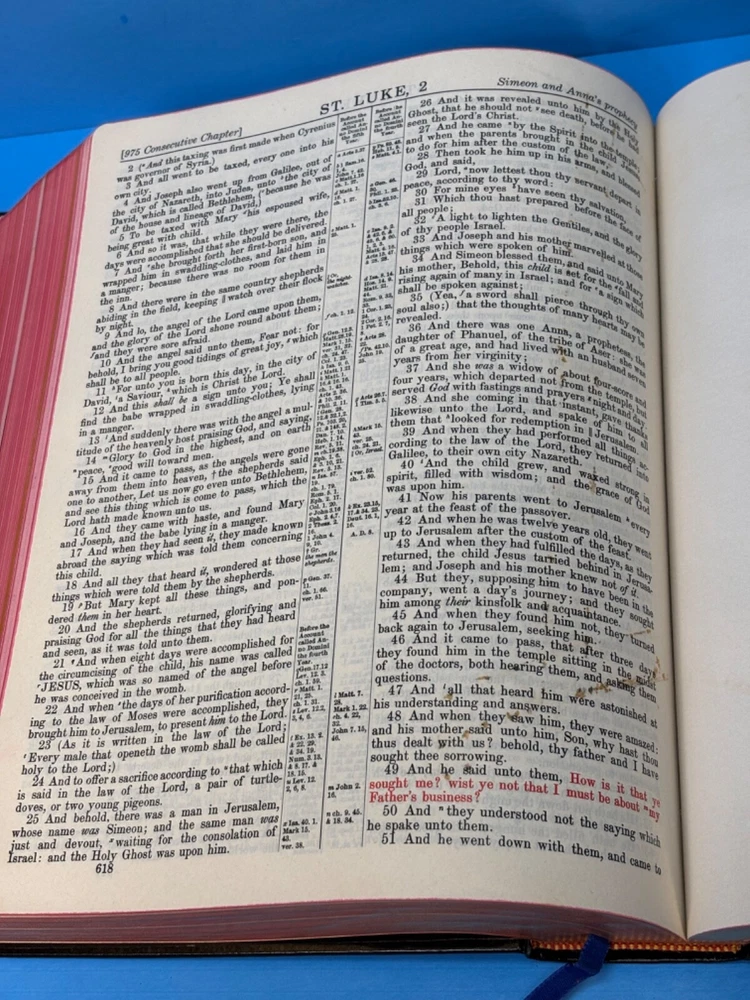 ST. LUKE, 2
Simeon and Anna's prophecy
[975 Consecutive Chapter]
2 (And this taxing was first made when Cyrenius
was governor of Syria.)
3 And all went to be taxed, every one into his
own city.
4 And Joseph also went up from Galilee, out of
the city of Nazareth, into Judea, unto the city of
David, which is called Bethlehem, (because he was
of the house and lineage of David,)
5 To be taxed with Mary his espoused wife,
being great with child.
6 And so it was, that while they were there, the
days were accomplished that she should be delivered.
7 And she brought forth her first-born son, and
wrapped him in swaddling-clothes, and laid him in
a manger; because there was no room for them in
the inn.
8 And there were in the same country shepherds
abiding in the field, keeping watch over their flock
by night.
9 And lo, the angel of the Lord came upon them,
and the glory of the Lord shone round about them;
and they were sore afraid.
10 And the angel said unto them, Fear not: for
behold, I bring you good tidings of great joy, which
shall be to all people.
11 For unto you is born this day, in the city of
David, a Saviour, which is Christ the Lord.
12 And this shall be a sign unto you; Ye shall
find the babe wrapped in swaddling-clothes, lying
in a manger.
13 And suddenly there was with the angel a mul-
titude of the heavenly host praising God, and saying,
14 Glory to God in the highest, and on earth
peace, good will toward men.
15 And it came to pass, as the angels were gone
away from them into heaven, the shepherds said
one to another, Let us now go even unto Bethlehem,
and see this thing which is come to pass, which the
Lord hath made known unto us.
16 And they came with haste, and found Mary
and Joseph, and the babe lying in a manger.
17 And when they had seen it, they made known
abroad the saying which was told them concerning
this child.
18 And all they that heard it, wondered at those
things which were told them by the shepherds.
19 But Mary kept all these things, and pon-
dered them in her heart.
20 And the shepherds returned, glorifying and
praising God for all the things that they had heard
and seen, as it was told unto them.
21 And when eight days were accomplished for
the circumcising of the child, his name was called
JESUS, which was so named of the angel before
he was conceived in the womb.
22 And when the days of her purification accord-
ing to the law of Moses were accomplished, they
brought him to Jerusalem, to present him to the Lord;
23 (As it is written in the law of the Lord;
Every male that openeth the womb shall be called
holy to the Lord;)
24 And to offer a sacrifice according to that which
is said in the law of the Lord, a pair of turtle-
doves, or two young pigeons.
25 And behold, there was a man in Jerusalem,
whose name was Simeon; and the same man was
just and devout, waiting for the consolation of
Israel: and the Holy Ghost was upon him.
618
26 And it was revealed unto him by the Holy
Ghost, that he should not see death, before he had
seen the Lord's Christ.
27 And he came by the Spirit into the temple:
and when the parents brought in the child Jesus,
to do for him after the custom of the law,
28 Then took he him up in his arms, and blessed
God, and said,
29 Lord, now lettest thou thy servant depart in
peace, according to thy word:
30 For mine eyes have seen thy salvation,
31 Which thou hast prepared before the face of
all people;
32 A light to lighten the Gentiles, and the glory
of thy people Israel.
33 And Joseph and his mother marvelled at those
things which were spoken of him.
34 And Simeon blessed them, and said unto Mary
his mother, Behold, this child is set for the fall and
rising again of many in Israel; and for a sign which
shall be spoken against;
35 (Yea, a sword shall pierce through thy own
soul also;) that the thoughts of many hearts may be
revealed.
36 And there was one Anna, a prophetess, the
daughter of Phanuel, of the tribe of Aser: she was
of a great age, and had lived with an husband seven
years from her virginity;
37 And she was a widow of about four-score and
four years, which departed not from the temple, but
served God with fastings and prayers night and day.
38 And she coming in that instant, gave thanks
likewise unto the Lord, and spake of him to all
them that looked for redemption in Jerusalem.
39 And when they had performed all things ac-
cording to the law of the Lord, they returned into
Galilee, to their own city Nazareth.
40 And the child grew, and waxed strong in
spirit, filled with wisdom; and the grace of God
was upon him.
41 Now his parents went to Jerusalem every
year at the feast of the passover.
42 And when he was twelve years old, they went
up to Jerusalem after the custom of the feast.
43 And when they had fulfilled the days, as they
returned, the child Jesus tarried behind in Jerusa-
lem; and Joseph and his mother knew not of it.
44 But they, supposing him to have been in the
company, went a day's journey; and they sought
him among their kinsfolk and acquaintance.
45 And when they found him not, they turned
back again to Jerusalem, seeking him.
46 And it came to pass, that after three days
they found him in the temple sitting in the midst
of the doctors, both hearing them, and asking them
questions.
47 And all that heard him were astonished at
his understanding and answers.
48 And when they saw him, they were amazed:
and his mother said unto him, Son, why hast thou
thus dealt with us? behold, thy father and I have
sought thee sorrowing.
49 And he said unto them, How is it that ye
sought me? wist ye not that I must be about my
Father's business?
50 And they understood not the saying which
he spake unto them.
51 And he went down with them, and came to